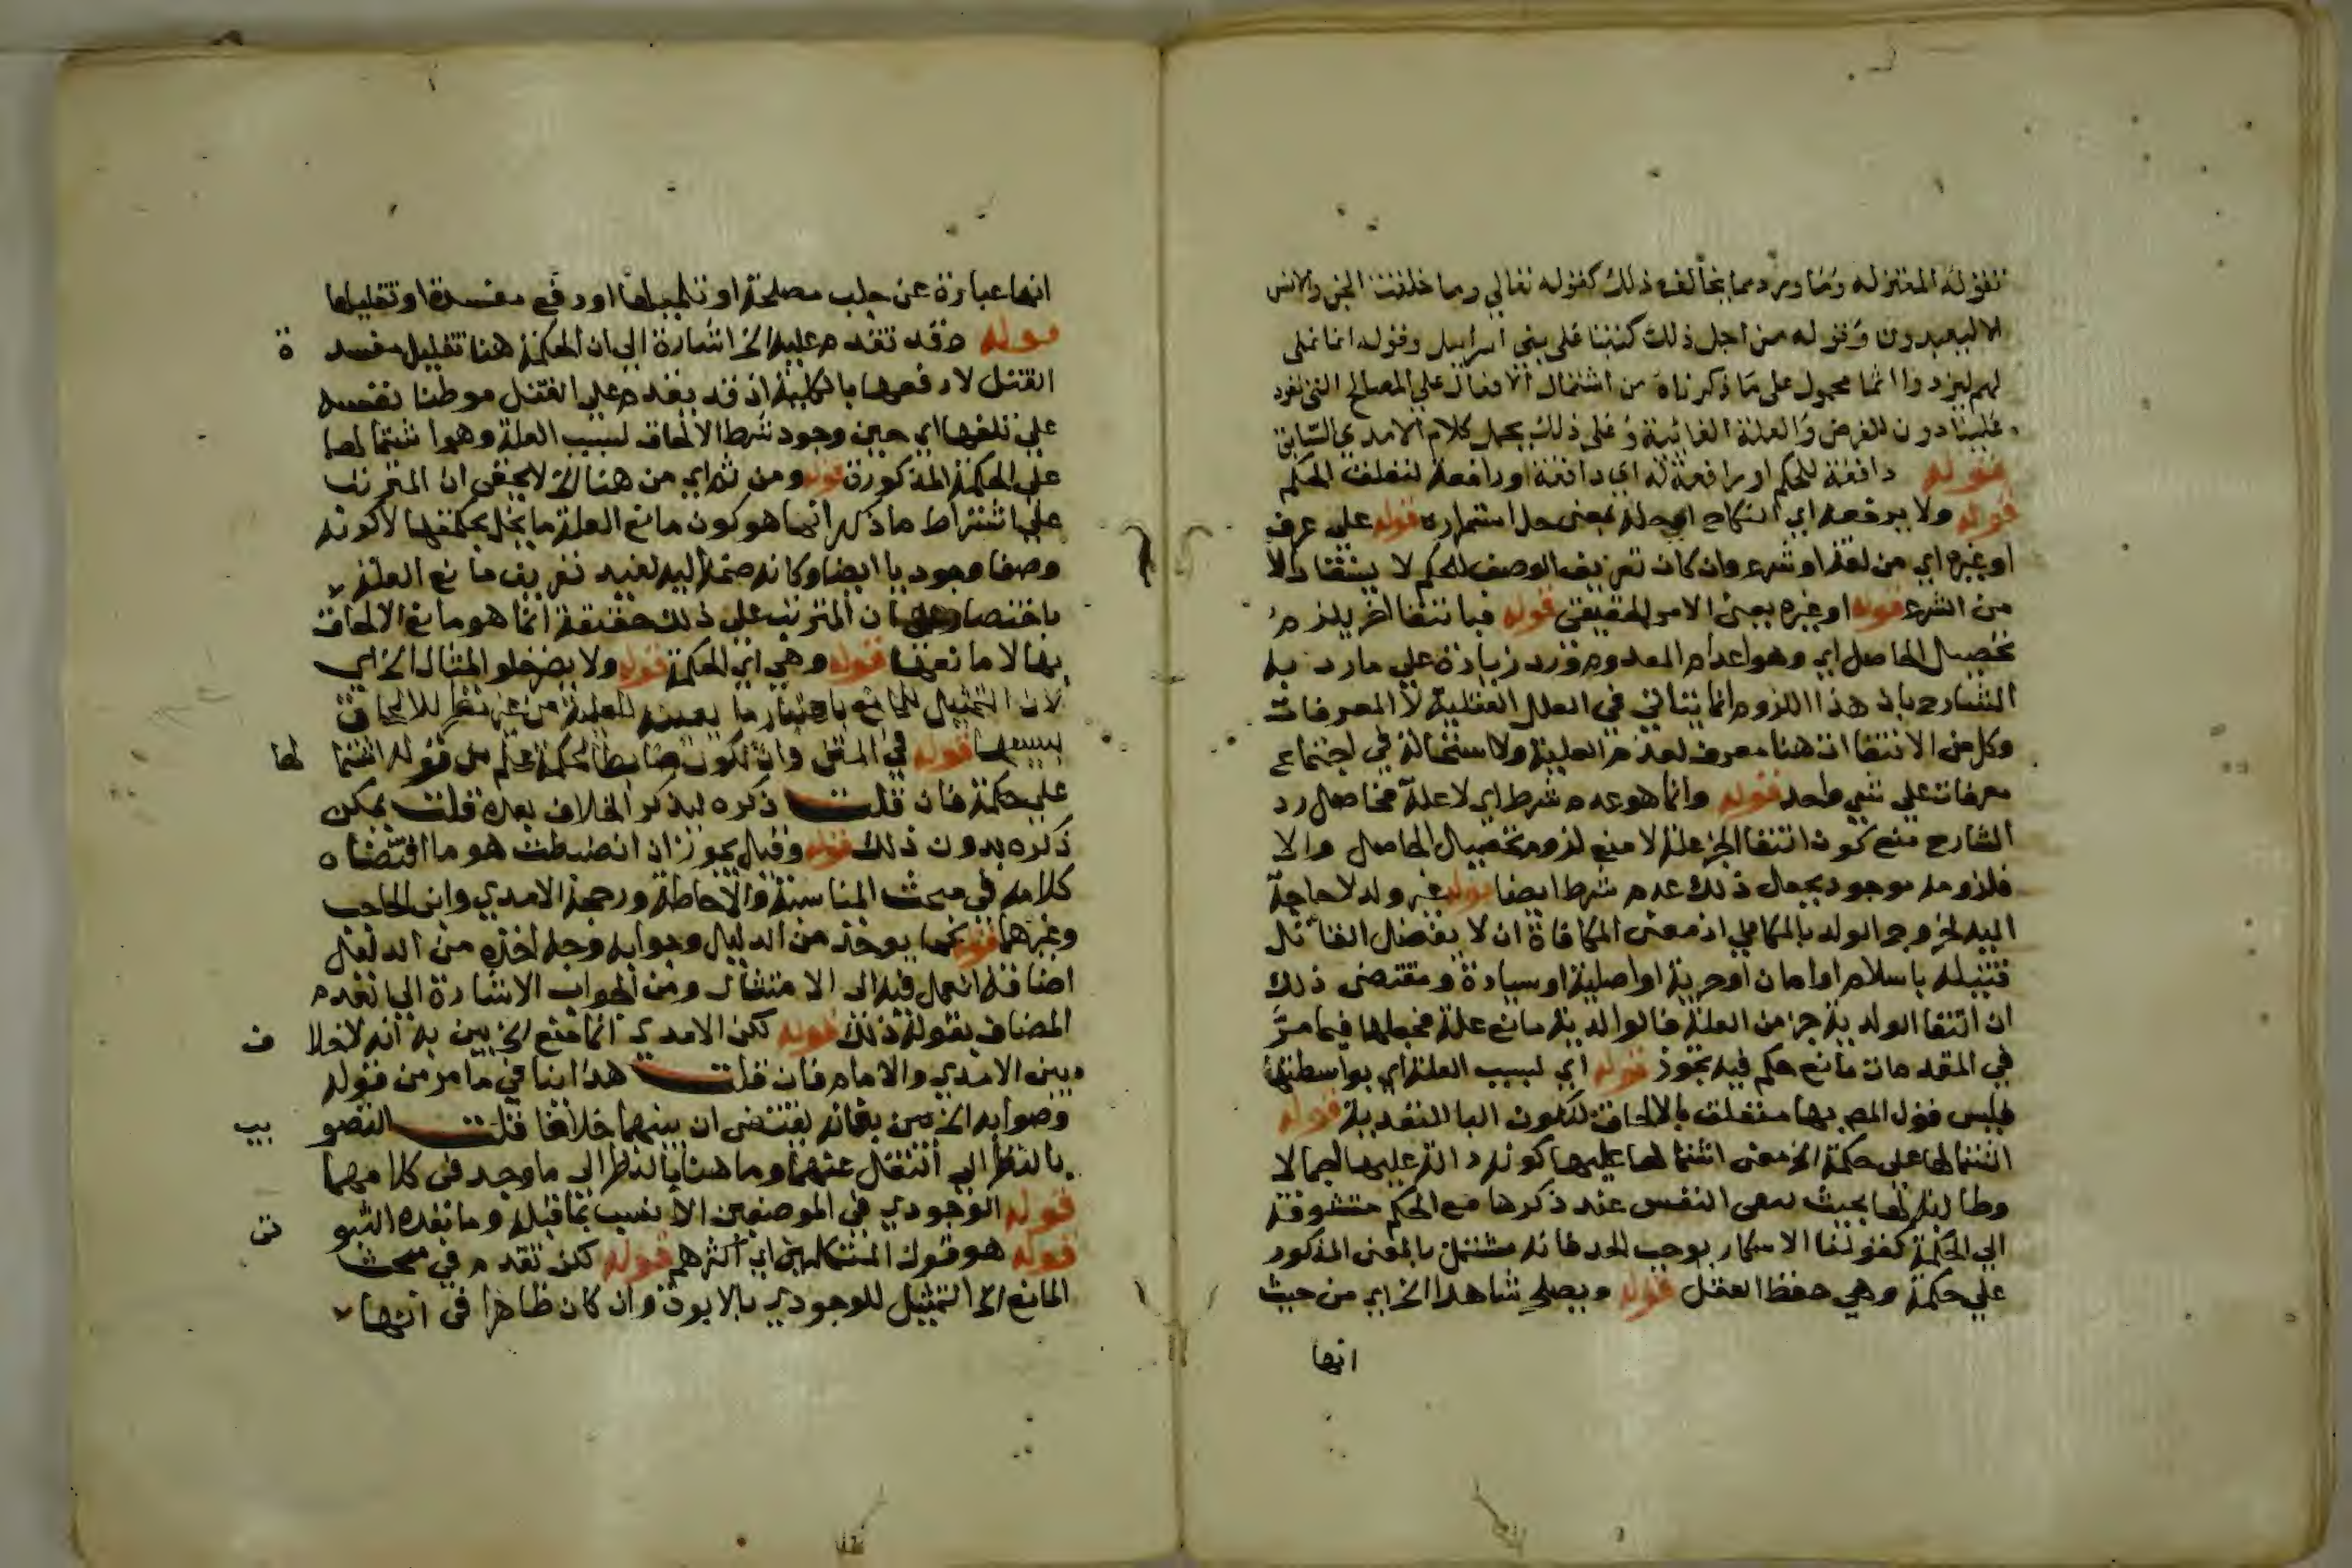 تقوله المعتزلة وما ورد مما يخالف ذلك كقوله تعالي وما خلقت الجن والانس
الا ليعبدون وقوله من اجل ذلك كتبنا على بني اسرايل وقوله انما نملي
لهم ليزدادوا اثما محمول على ما ذكرناه من اشتمال الافعال علي المصالح التي تعود
علينا دون الغرض والعلة الغائية وعلى ذلك يحمل كلام الامدي السابق
قوله دافعة للحكم او رافعة له اي دافعة او رافعة لتعلق الحكم
قوله ولا يرفعه اي النكاح اي حله بمعنى حل استمراره قوله على عرف
او غيره اي من لغة او شرع وان كان تعريف الوصف للحكم لا يستفاد الا
من الشرع قوله او غيره بمعنى الامر الحقيقي قوله فبانتفا اخر يلزم
تحصيل الحاصل اي وهو اعدام المعدوم وزد زيادة علي ما رد به
الشارح بان هذا اللزوم انما يتاتي في العلل العقلية لا المعرفات
وكل من الانتفاات هنا معرف لعدم العلية ولا استحالة في اجتماع
معرفات على شي واحد قوله وانما هو عدم شرط اي لا علة فحاصل رد
الشارح منع كون انتفا الجز علة لا منع لزوم تحصيل الحاصل والا
فلزومه موجود بجعل ذلك عدم شرط ايضا قوله غير ولد لا حاجة
اليه لخروج الولد بالمكافي اذ معنى المكافاة ان لا يفضل القاتل
قتيله باسلام او امان او حرية او اصلية او سيادة ومقتضى ذلك
ان انتفا الولدية جز من العلة فالوالدية مانع علة فجعلها فيما مر
في المقدمات مانع حكم فيه تجوز قوله اي لسبب العلة اي بواسطتها
فليس قول المص بها متعلقا بالالحاق لتكون البا للتعدية قوله
اشتمالها على حكمة الخ معنى اشتمالها عليها كونها دالة عليها اجمالا
وطالبة لها بحيث النفس عند ذكرها مع الحكم متشوقة
الي الحكمة كقولنا الاسكار يوجب الحد فانه مشتمل بالمعنى المذكور
علي حكمة وهي حفظ العقل قوله ويصلح شاهدا الخ اي من حيث
انها
انها عبارة عن جلب مصلحة او تكميلها او دفع مفسدة او تقليلها
قوله وقد تقدم عليه الخ اشارة الي ان الحكمة هنا تقليل مفسدة
القتل لا دفعها بالكلية اذ قد يقدم على القتل موطنا نفسه
على تلفها اي حين وجود شرط الالحاق لسبب العلة وهو اشتمالها
علي الحكمة المذكورة قوله ومن ثم اي من هنا الخ لا يخفى ان المترتب
علي اشتراط ما ذكر انما هو كون مانع العلة ما يخل بحكمتها لا كونه
وصفا وجوديا ايضا وكانه ضمه اليه لفيد تعريف مانع العلة
باختصار ان المترتب علي ذلك حقيقة انما هو مانع الالحاق
بها لا مانعها قوله وهي اي الحكمة قوله ولا يضر خلو المثال الخ اي
لان التمثيل للمانع باعتبار ما يعينه للعلية من غير نظر للالحاق
بسببها قوله في المتن وان تكون ضابطا لحكمة علم من قوله اشتمالها
علي حكمة فان قلت ذكره ليذكر الخلاف بعده قلت يمكن
ذكره بدون ذلك قوله وقيل يجوز ان انضبطت هو ما اقتضاه
كلامه في مبحث المناسبة والاحاطة ورجحه الامدي وابن الحاجب
وغيرهما قوله كما يوخذ من الدليل وجوابه وجه اخذه من الدليل
اضافة العمل فيه الى الامتثال ومن الجواب الاشارة الي تقدم
المضاف بقوله ذلك قوله لكن الامدي انما منع الخ بين به انه لا خلاف
بين الامدي والامام فان قلت هذا ينافي ما مر من قوله
وصوابه الخ من بيانه يقتضى ان بينهما خلافا قلت التصويب
بالنظر الي انتقل عنهما وما هنا بالنظر الي ما وجد في كلامهما
قوله الوجودي في الموضعين الانسب بما قبله وما بعده الثبوتي
قوله هو قول المتكلمين اي اكثرهم قوله لكن تقدم في مبحث
المانع الخ التمثيل للوجودي بالابوة وان كان ظاهرا في انها